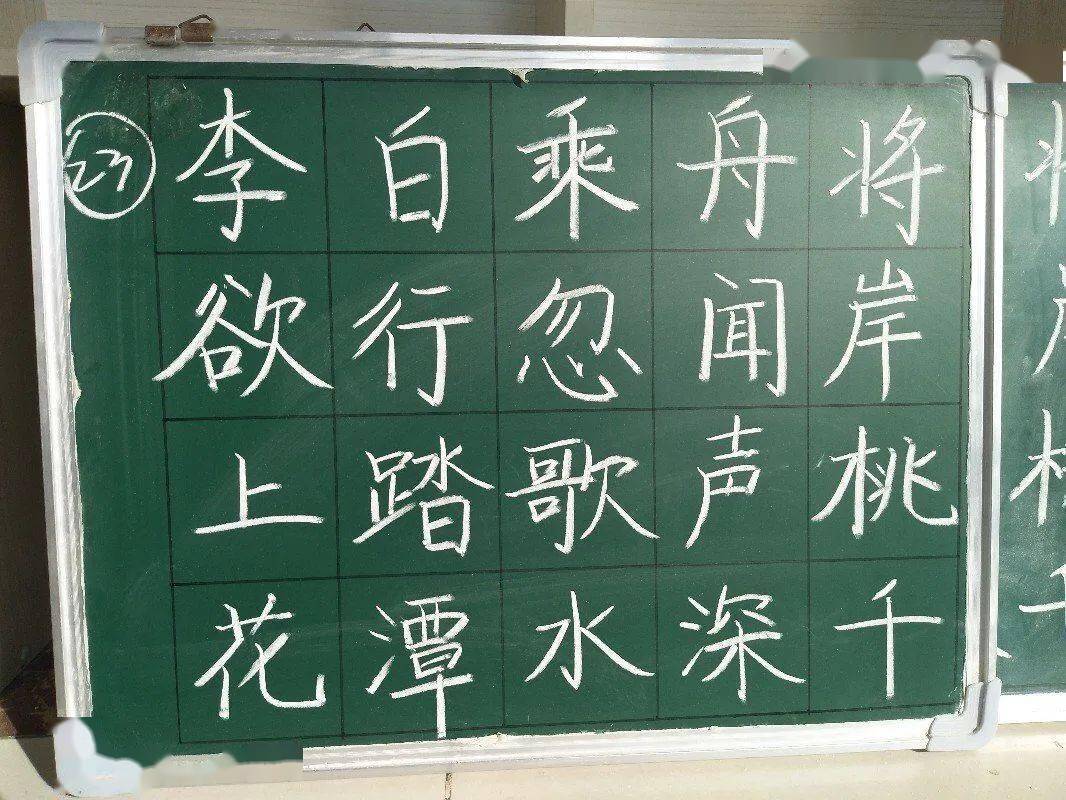 23
李白乘舟将
欲行忽闻岸
上踏歌声桃
花潭水深千